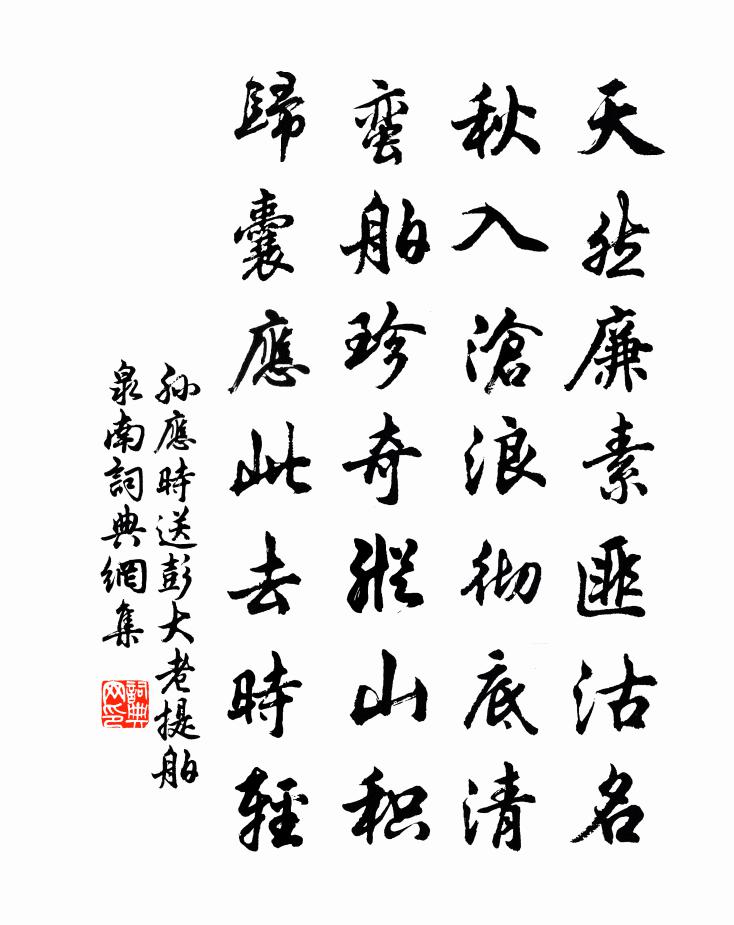 天然廉素匪沽名
秋入滄浪彻底清
蛮舶珍奇縱山积
歸囊應此去時輕
孙應時送彭大老提舶
泉南詞典網集
詞典网印